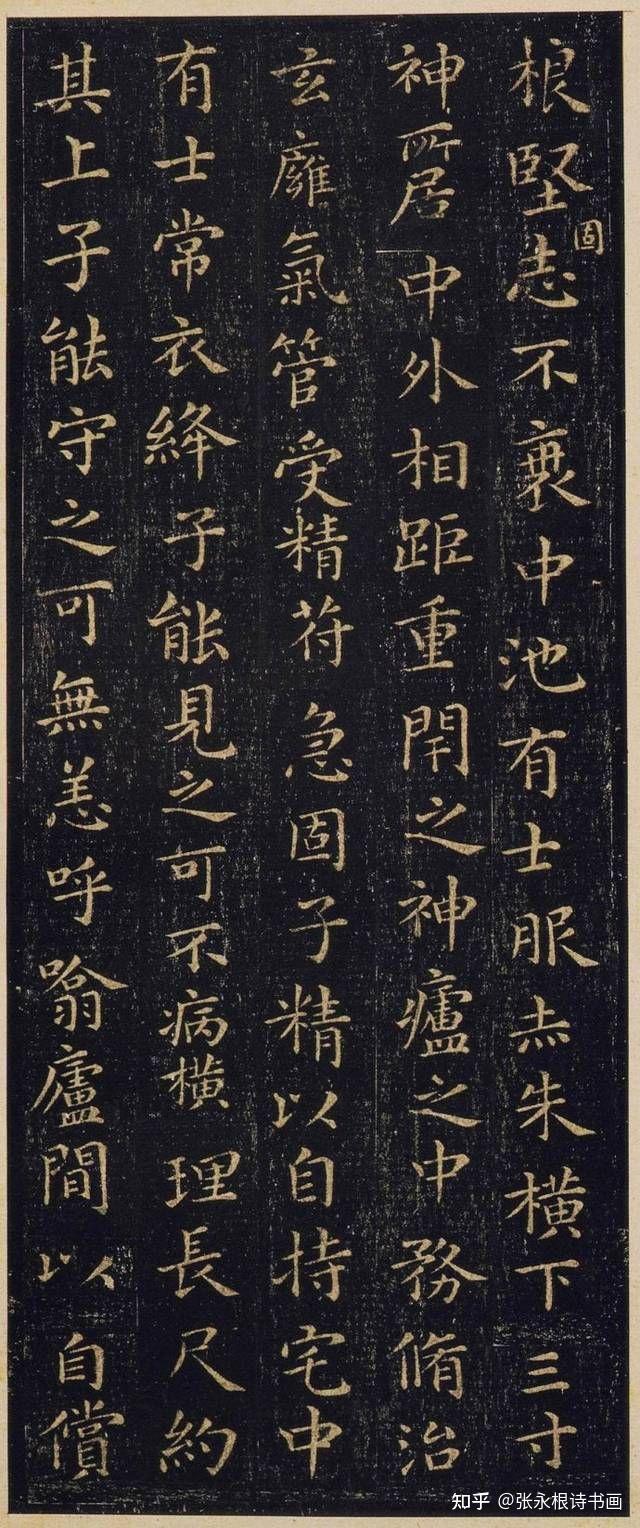 根堅志不衰中池有士服赤朱橫下三寸
固
神所居中外相距重閇之神廬之中務脩治
玄廱氣管受精苻急固子精以自持宅中
有士常衣絳子能見之可不病橫理長尺約
其上子能守之可無恙呼噏廬間以自償
知乎 @张永根诗书画